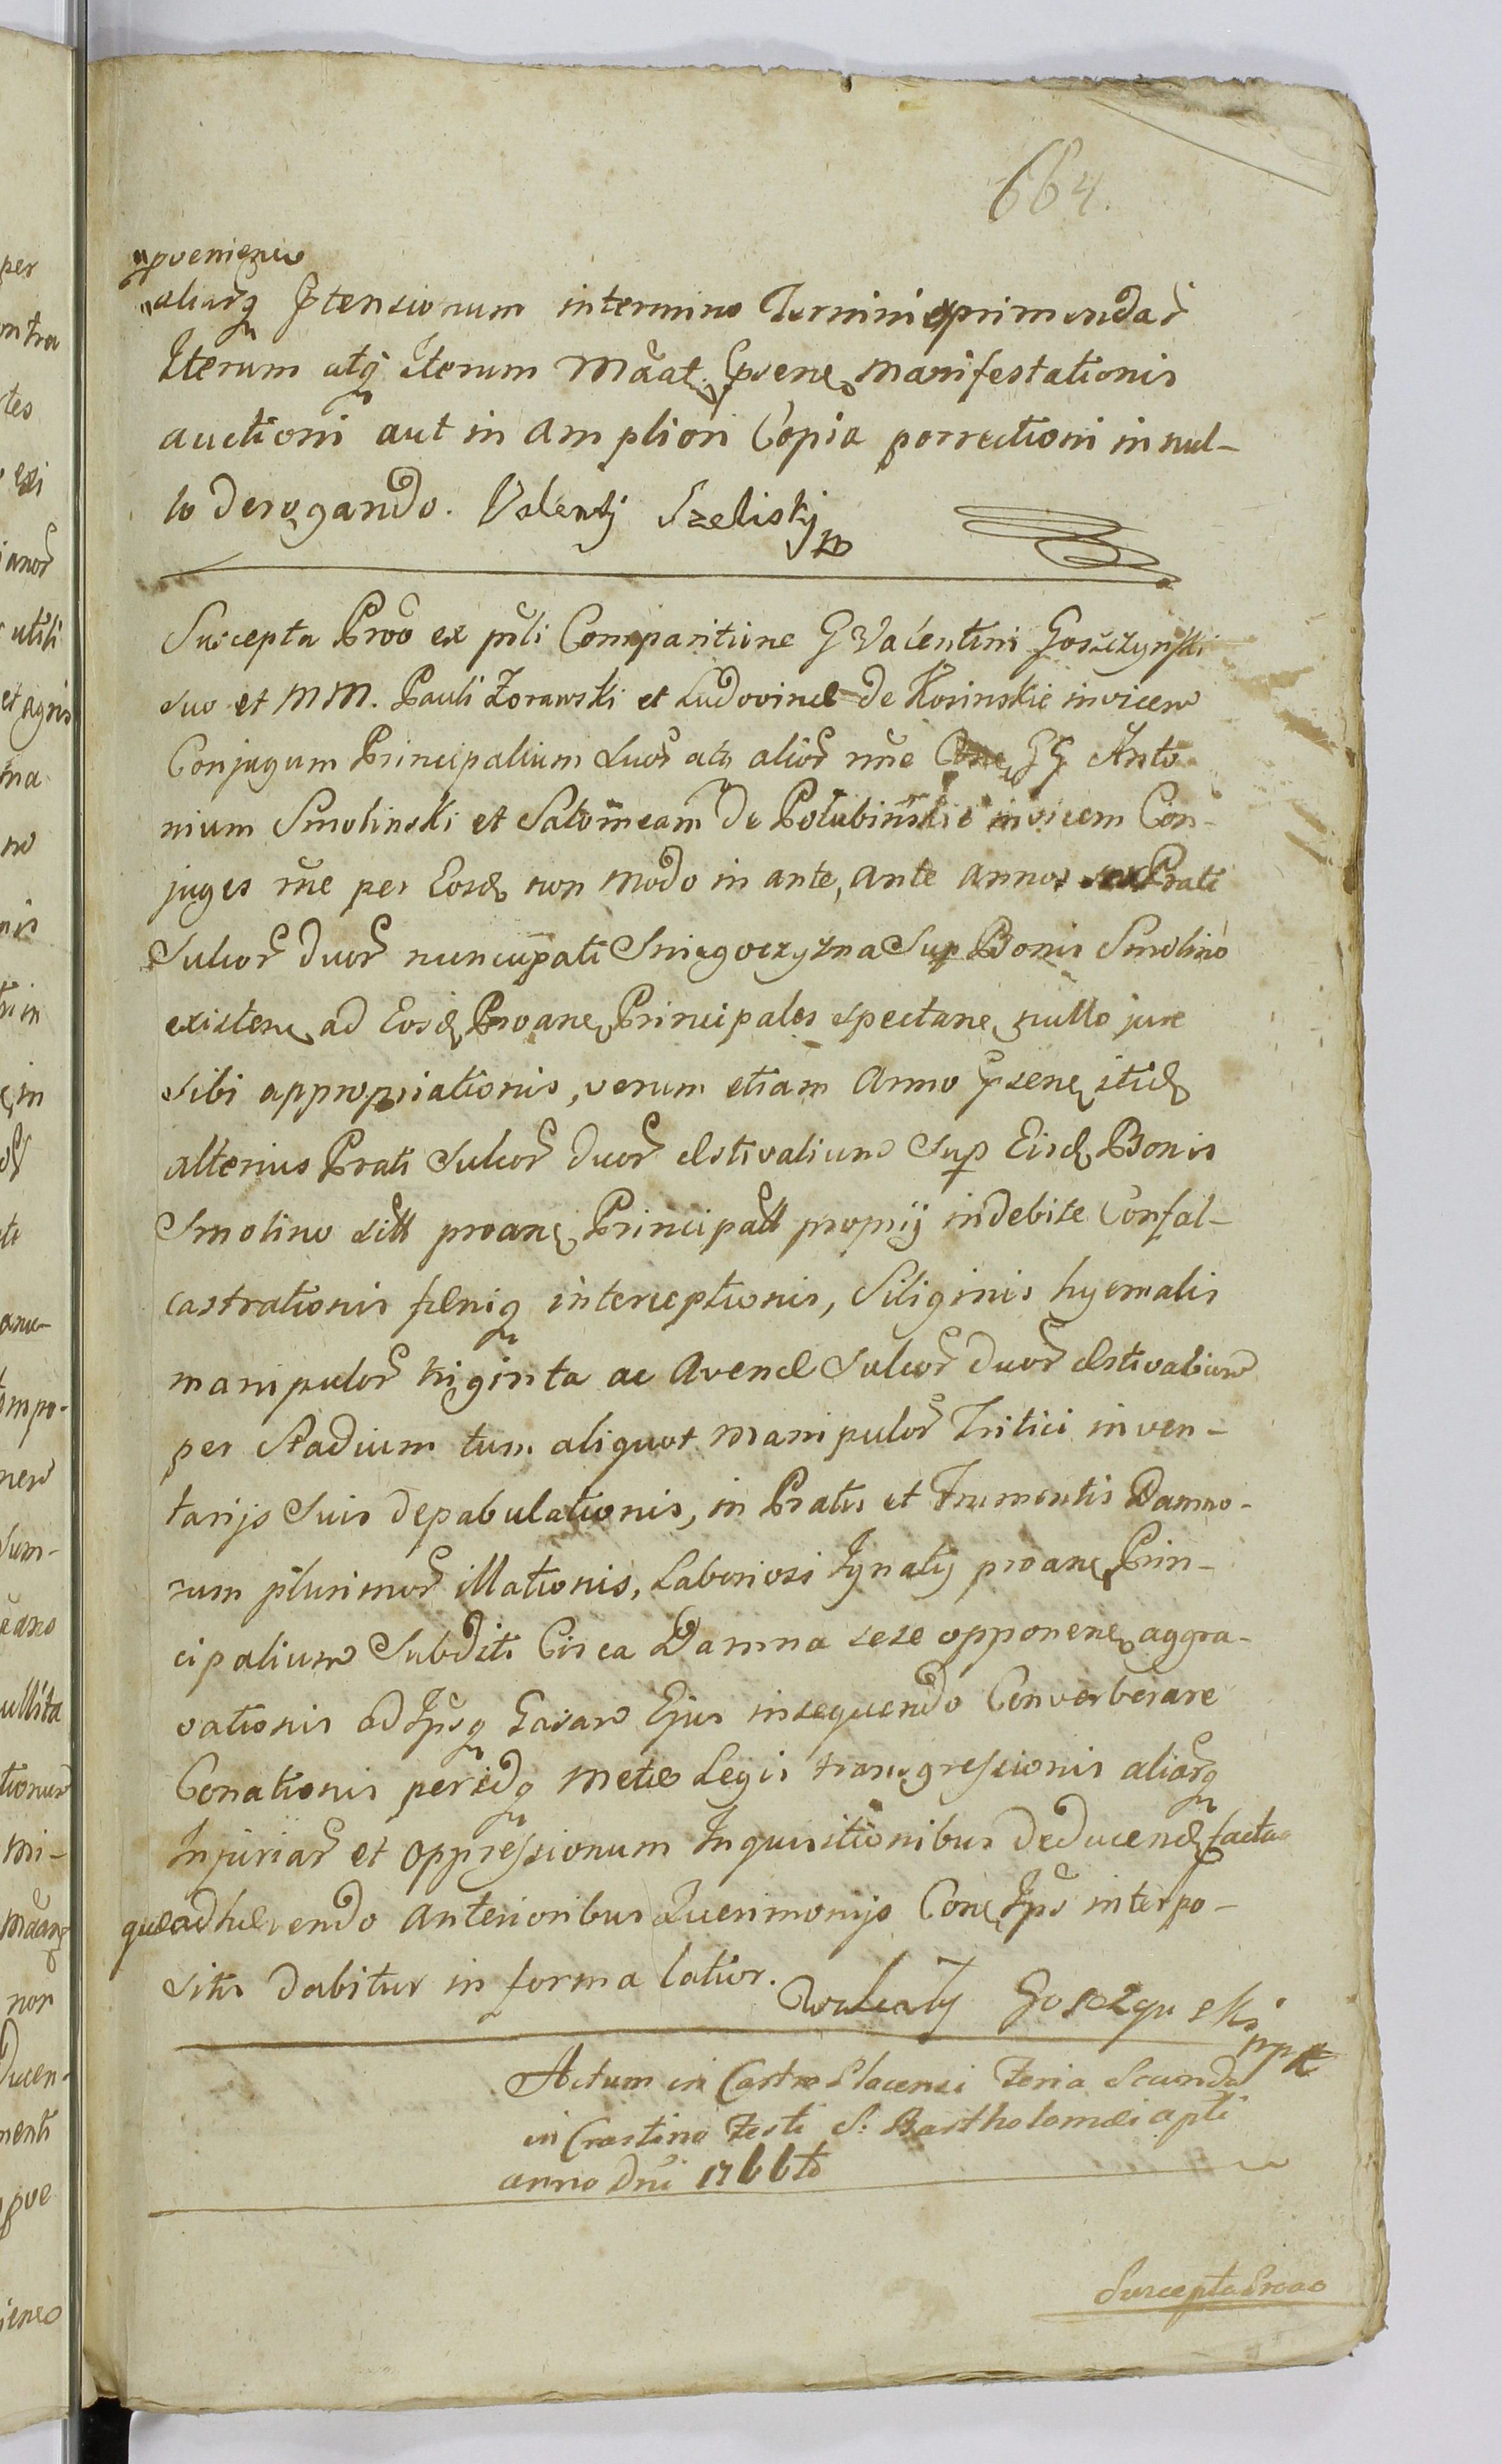 664.
proveniens
aliarq Ptensionum in termino Termini exprimendar
Iterum atq Iterum Maat. Psene Manifestationis
auctioni aut in ampliori Copia porrectioni in nul-
lo derogando. Valenty Szeliski
Suscepta Proo ex psli Comparitione G Valentini Goszczynski
suo et MM. Pauli Zorawski et Ludovicæ de Kosinskie invicem
Conjugum Principalium suor atq alior nne Cone GG Anto
nium Smolinski et Salomeam de Połubinskie invicem Con-
juges rne per Eosd non modo in ante, ante annos sex Prati
Sulcor duor nuncupati Sniegoczyzna Sup Bonis Smolino
existen ad Eosd Proane Principales spectane nullo jure
sibi appropriationis, verum etiam Anno Psene itid
alterius Prati Sulcor duor æstivalium Sup Eisd Bonis
Smolino sitt proane Principatt proprij indebite Confal-
castrationis fæniq interceptionis, Siliginis hyemalis
manipulor triginta ac Avenæ Sulcor duor æstivalium
per Stadium tum aliquot manipulor Tritici inven-
tarijs Suis depabulationis, in Pratis et Frumentis Damno-
rum plurimor illationis, Laboriosi Ignatij proane Prin-
cipalium Subditi Circa Damna sese opponene aggra-
vationis ad Ipsq Casam Ejus insequendo Converberare
Conationis peridq Metæ Legis transgressionis aliarq
Injuriar et oppressionum Inquisitionibus deducend facta
quæ adhærendo anterioribus Querimonijs Cone Ips interpo-
sitis dabitur in forma latior.
Walenty Goszczynski mpr
Actum in Castro Placensi Feria Scunda
in Crastino Festi S. Bartholomæi apti
anno Dni 1766to
Suscepta Proao